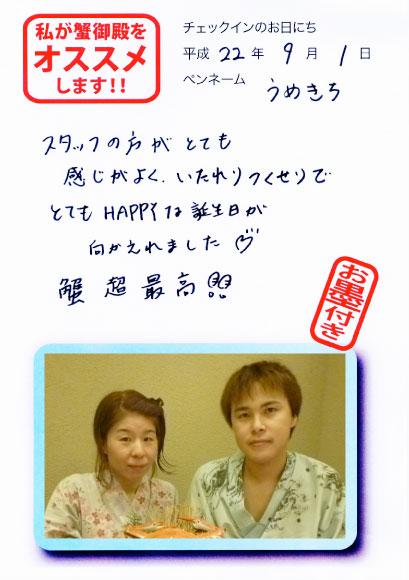 私が蟹御殿を
オススメ
します!!
チェックインのお日にち
平成 22 年 9 月 1 日
ペンネーム うめきち
スタッフの方がとても
感じがよく、いたれりつくせりで
とてもHAPPYな誕生日が
向かえれました♡
蟹超最高!!
お墨付き